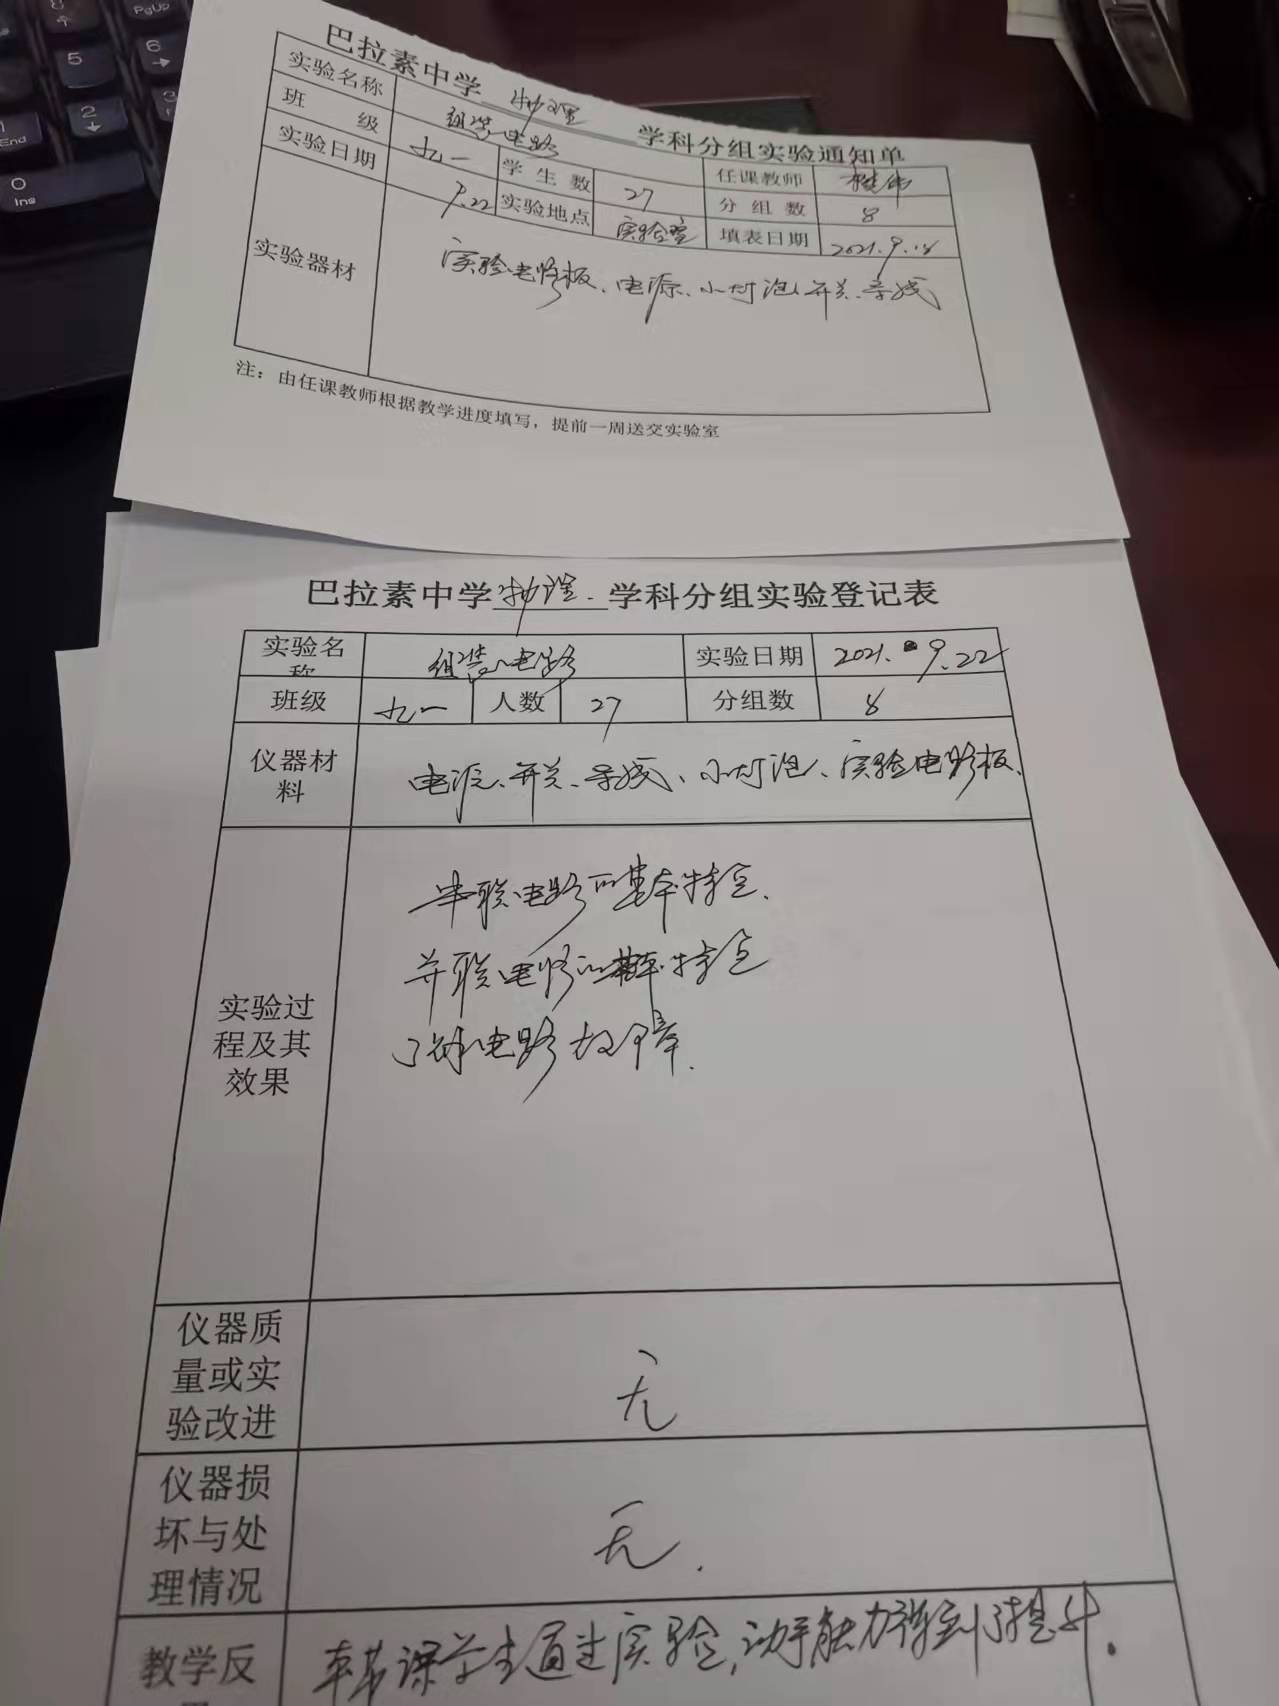 巴拉素中学 物理 学科分组实验通知单
实验名称 组装电路 任课教师
班级 九一 学生数 27 分组数 8
实验日期 9.22 实验地点 实验室 填表日期 2021.9.18
实验器材 实验电路板、电源、小灯泡、开关、导线
注：由任课教师根据教学进度填写，提前一周送交实验室
巴拉素中学 物理 学科分组实验登记表
实验名称 组装电路 实验日期 2021.9.22
班级 九一 人数 27 分组数 8
仪器材料 电源、开关、导线、小灯泡、实验电路板.
实验过程及其效果
串联电路的基本特点.
并联电路的基本特点
了解电路故障.
仪器质量或实验改进 无
仪器损坏与处理情况 无.
教学反 本节课学生通过实验,动手能力得到了提升.
PgUp
5
6
2
3
1
End
0
Ins